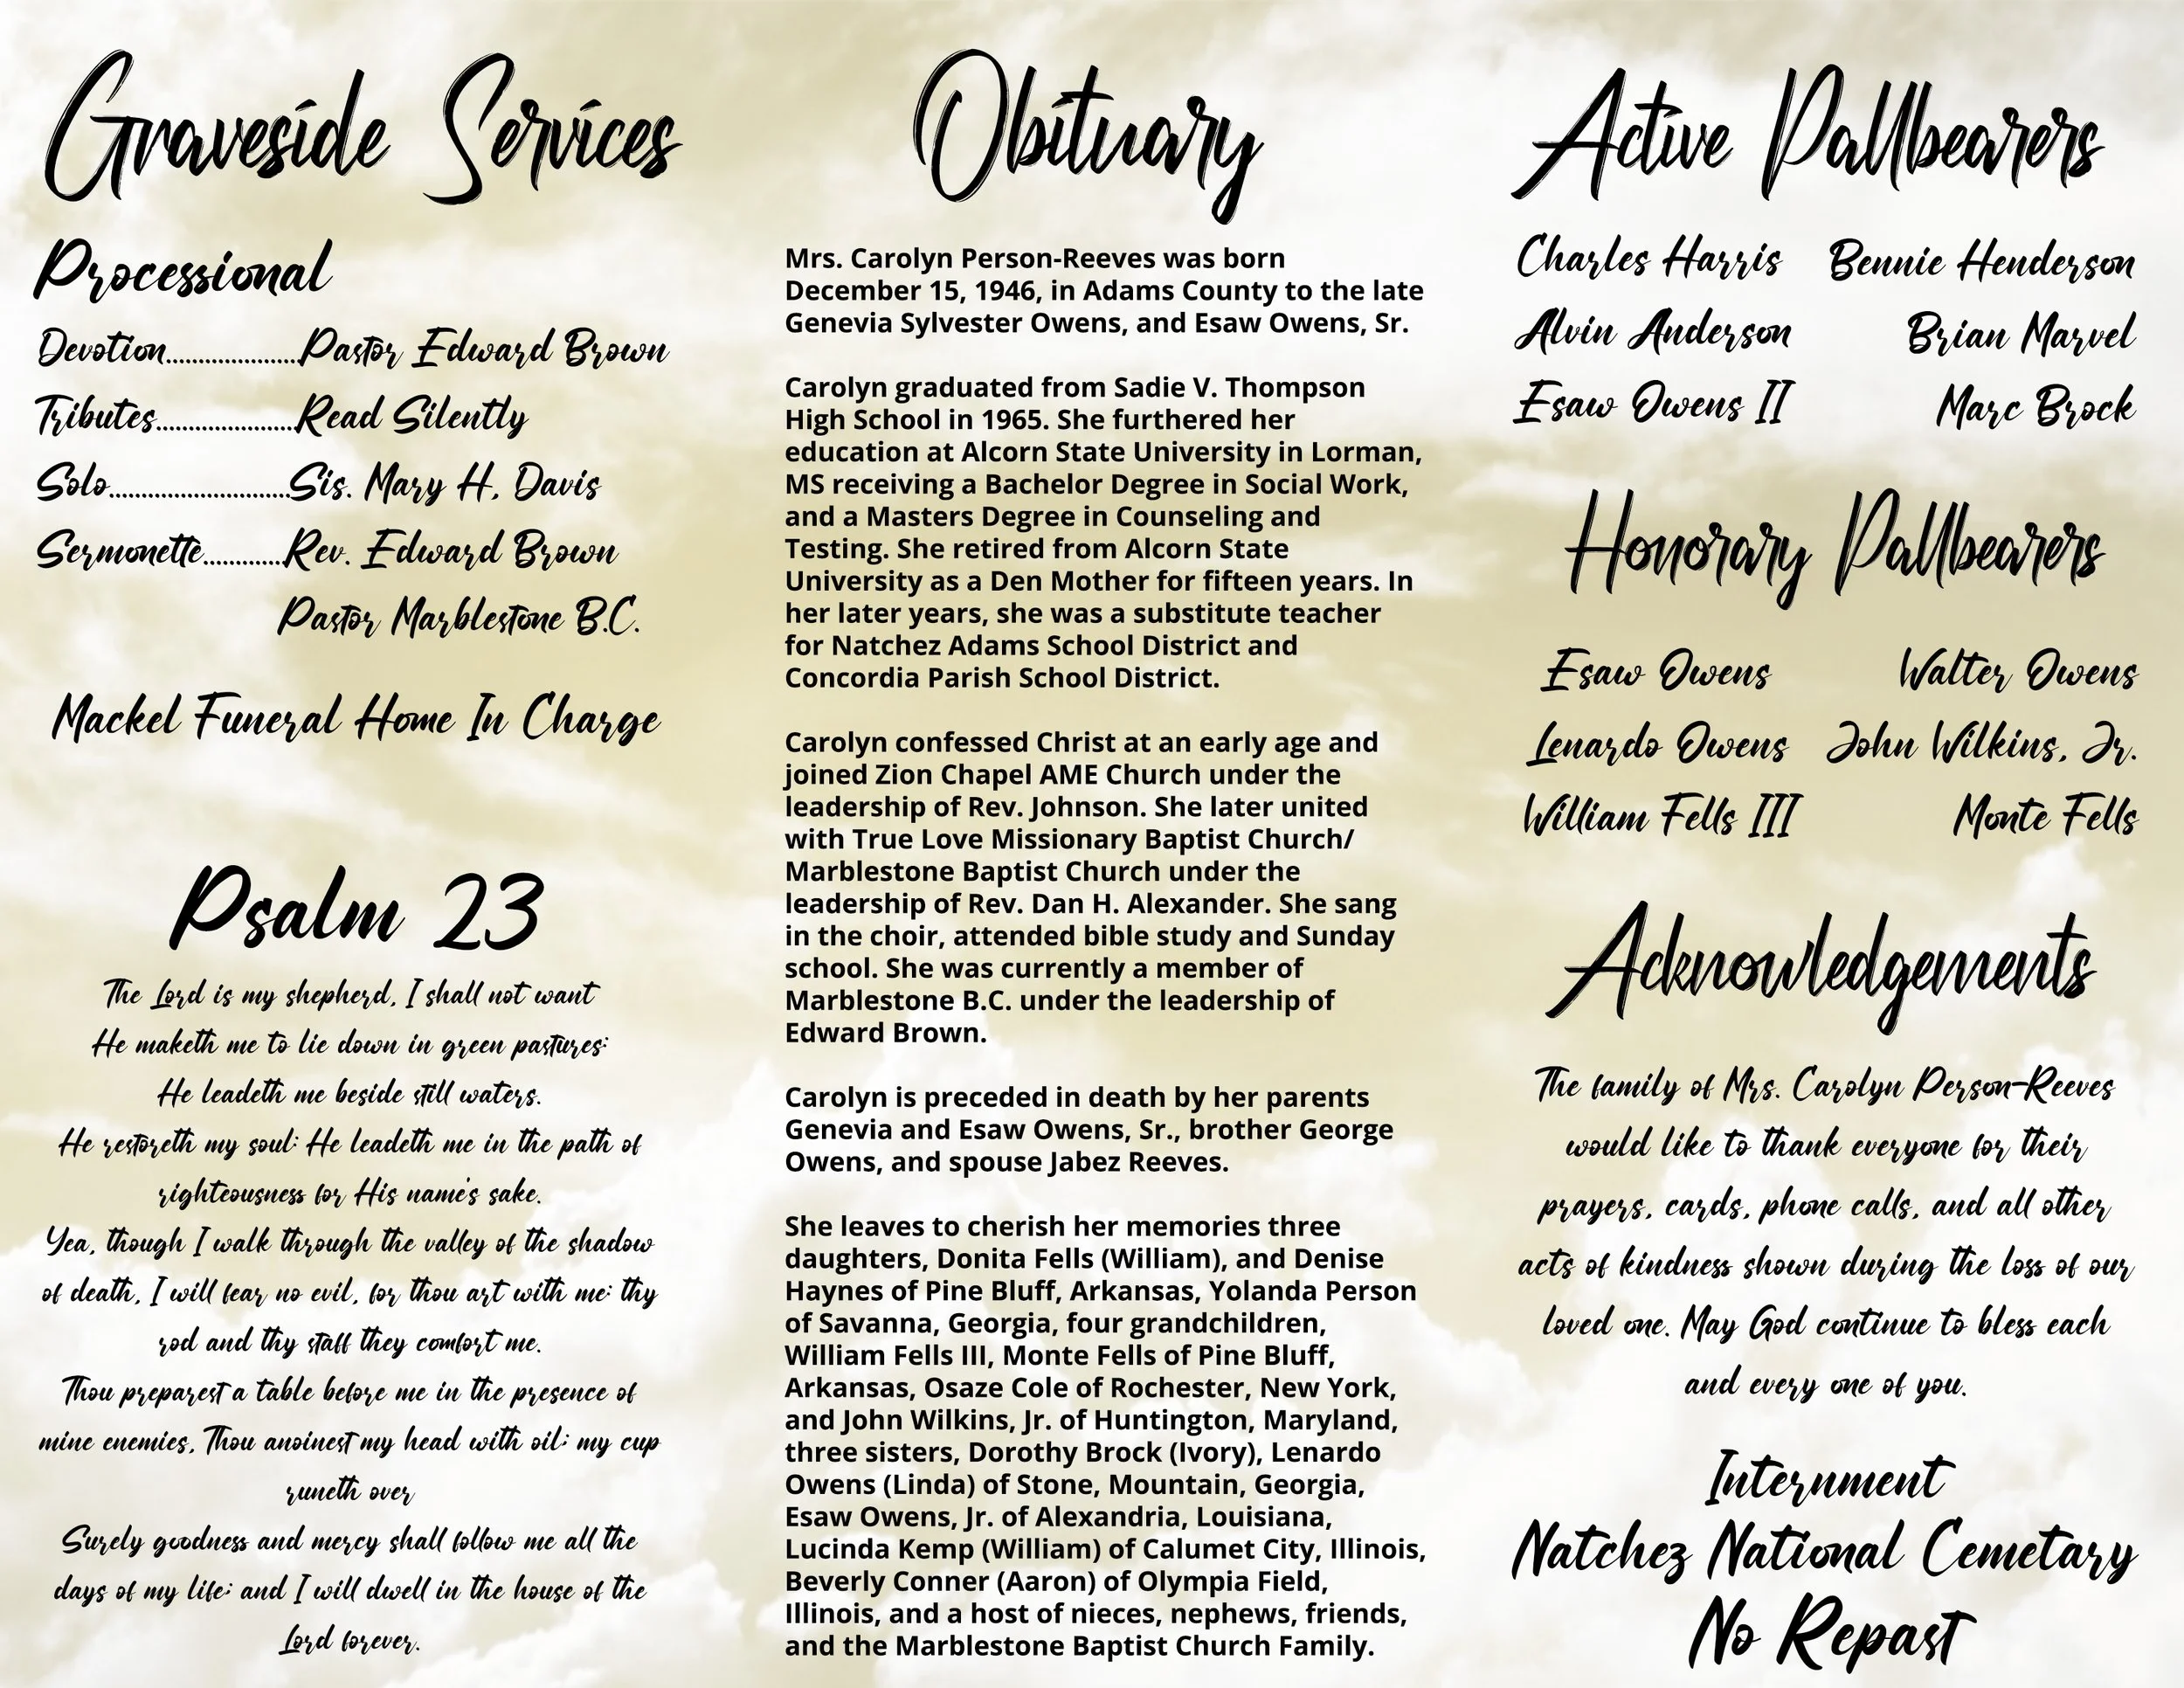 Graveside Services
Processional
Devotion....................Pastor Edward Brown
Tributes.....................Read Silently
Solo...........................Sis. Mary H. Davis
Sermonette............Rev. Edward Brown
Pastor Marblestone B.C.
Mackel Funeral Home In Charge
Psalm 23
The Lord is my shepherd, I shall not want
He maketh me to lie down in green pastures:
He leadeth me beside still waters.
He restoreth my soul: He leadeth me in the path of
righteousness for His name's sake.
Yea, though I walk through the valley of the shadow
of death, I will fear no evil, for thou art with me: thy
rod and thy staff they comfort me.
Thou preparest a table before me in the presence of
mine enemies, Thou anoinest my head with oil: my cup
runeth over
Surely goodness and mercy shall follow me all the
days of my life: and I will dwell in the house of the
Lord forever.
Obituary
Mrs. Carolyn Person-Reeves was born
December 15, 1946, in Adams County to the late
Genevia Sylvester Owens, and Esaw Owens, Sr.
Carolyn graduated from Sadie V. Thompson
High School in 1965. She furthered her
education at Alcorn State University in Lorman,
MS receiving a Bachelor Degree in Social Work,
and a Masters Degree in Counseling and
Testing. She retired from Alcorn State
University as a Den Mother for fifteen years. In
her later years, she was a substitute teacher
for Natchez Adams School District and
Concordia Parish School District.
Carolyn confessed Christ at an early age and
joined Zion Chapel AME Church under the
leadership of Rev. Johnson. She later united
with True Love Missionary Baptist Church/
Marblestone Baptist Church under the
leadership of Rev. Dan H. Alexander. She sang
in the choir, attended bible study and Sunday
school. She was currently a member of
Marblestone B.C. under the leadership of
Edward Brown.
Carolyn is preceded in death by her parents
Genevia and Esaw Owens, Sr., brother George
Owens, and spouse Jabez Reeves.
She leaves to cherish her memories three
daughters, Donita Fells (William), and Denise
Haynes of Pine Bluff, Arkansas, Yolanda Person
of Savanna, Georgia, four grandchildren,
William Fells III, Monte Fells of Pine Bluff,
Arkansas, Osaze Cole of Rochester, New York,
and John Wilkins, Jr. of Huntington, Maryland,
three sisters, Dorothy Brock (Ivory), Lenardo
Owens (Linda) of Stone, Mountain, Georgia,
Esaw Owens, Jr. of Alexandria, Louisiana,
Lucinda Kemp (William) of Calumet City, Illinois,
Beverly Conner (Aaron) of Olympia Field,
Illinois, and a host of nieces, nephews, friends,
and the Marblestone Baptist Church Family.
Active Pallbearers
Charles Harris Bennie Henderson
Alvin Anderson Brian Marvel
Esaw Owens II Marc Brock
Honorary Pallbearers
Esaw Owens Walter Owens
Lenardo Owens John Wilkins, Jr.
William Fells III Monte Fells
Acknowledgements
The family of Mrs. Carolyn Person-Reeves
would like to thank everyone for their
prayers, cards, phone calls, and all other
acts of kindness shown during the loss of our
loved one. May God continue to bless each
and every one of you.
Internment
Natchez National Cemetary
No Repast